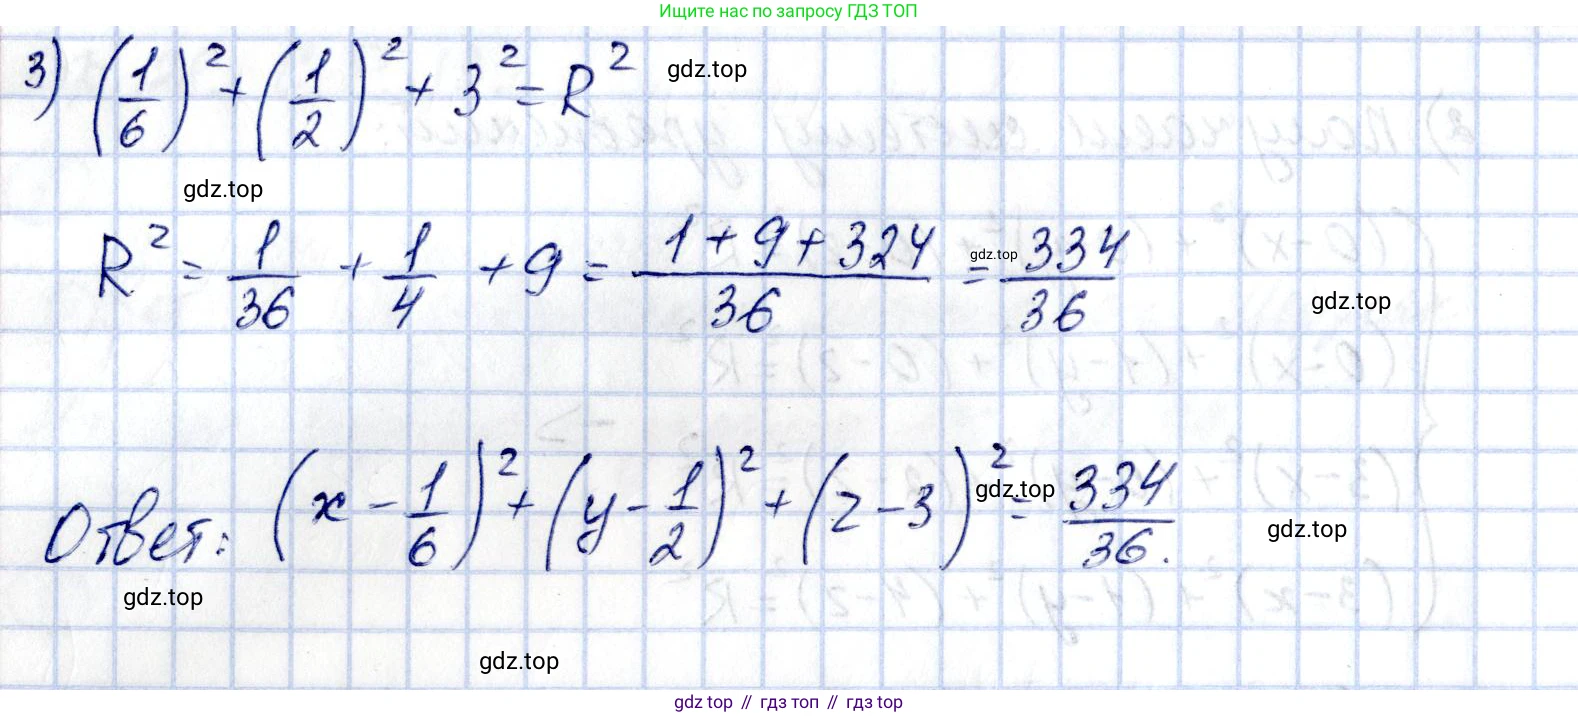 Ищите нас по запросу ГДЗ ТОП
3) (1/6)² + (1/2)² + 3² = R²
gdz.top
gdz.top
R² = 1/36 + 1/4 + 9 = (1 + 9 + 324)/36 = 334/36
gdz.top
gdz.top
Ответ: (x − 1/6)² + (y − 1/2)² + (z − 3)² = 334/36.
gdz.top
gdz.top
gdz.top
gdz.top
gdz top // гдз топ // гдз top